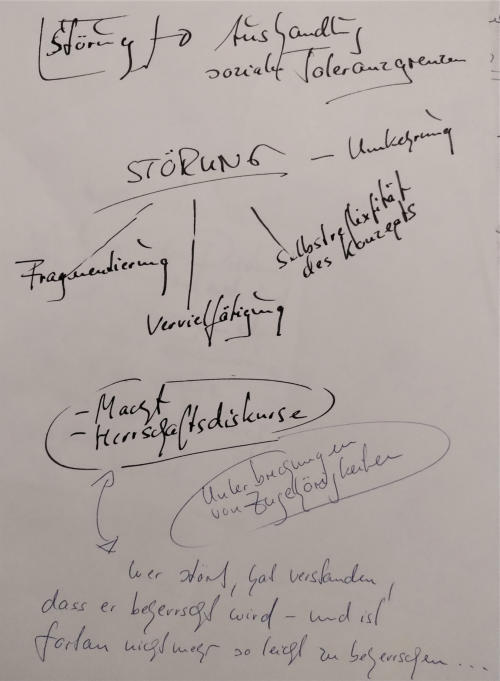 Störung → Aushandlung
sozialer Toleranzgrenzen
STÖRUNG – Umkehrung
Fragmentierung
Vervielfältigung
Selbstreflexität
des Konzepts
- Macht
- Herrschaftsdiskurse
Unterbrechungen
von Zugehörigkeiten
Wer stört, hat verstanden,
dass er beherrscht wird – und ist
fortan nicht mehr so leicht zu beherrschen ...